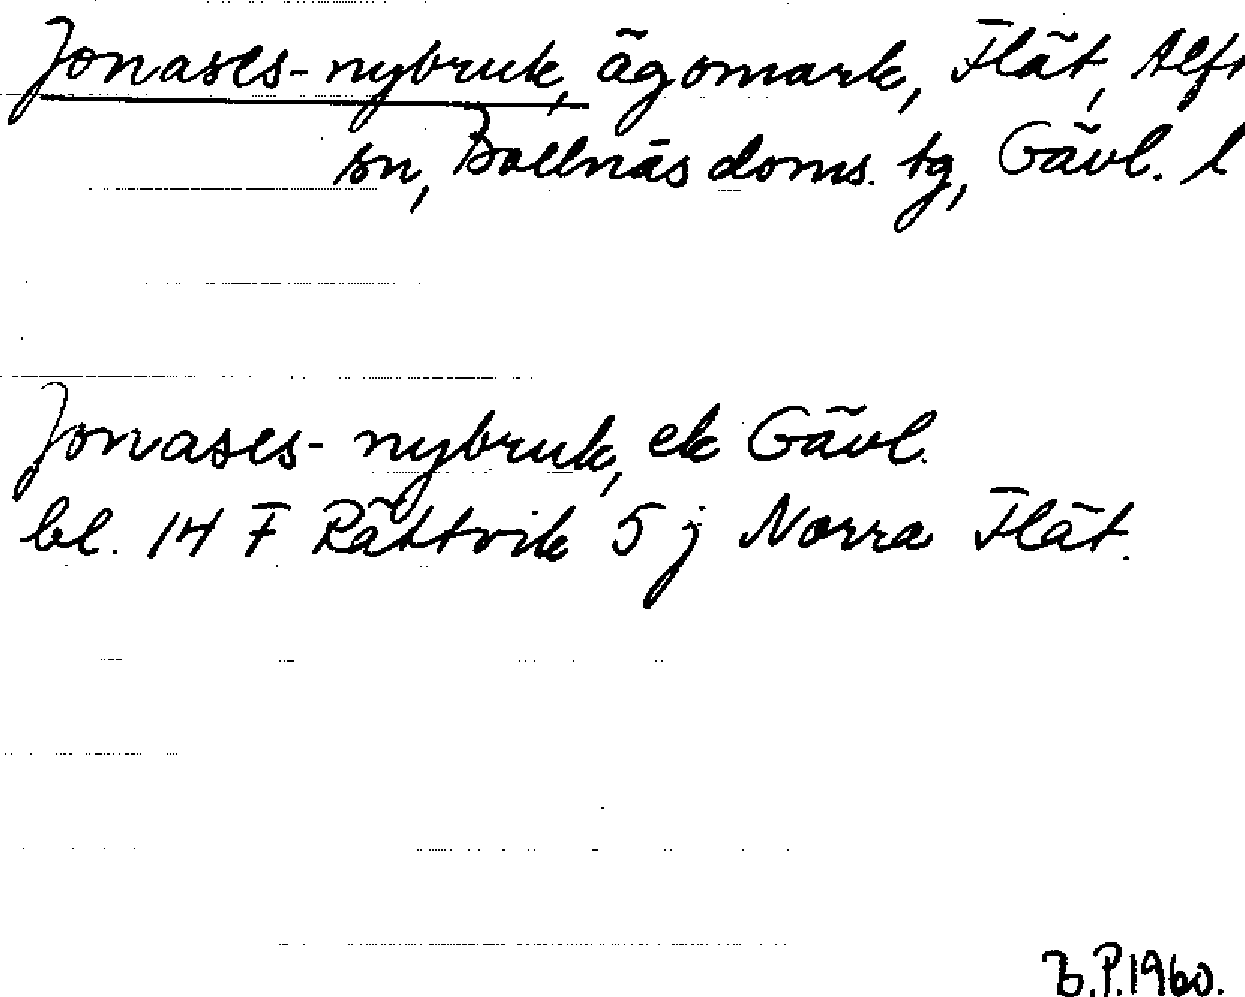 Jonases-nybruk, ägomark, Flät, Alft
sn, Bollnäs doms. tg, Gävl. l
Jonases-nybruk, ek Gävl.
bl. 14 F Rättvik 5 j Norra Flät.
B.P. 1960.